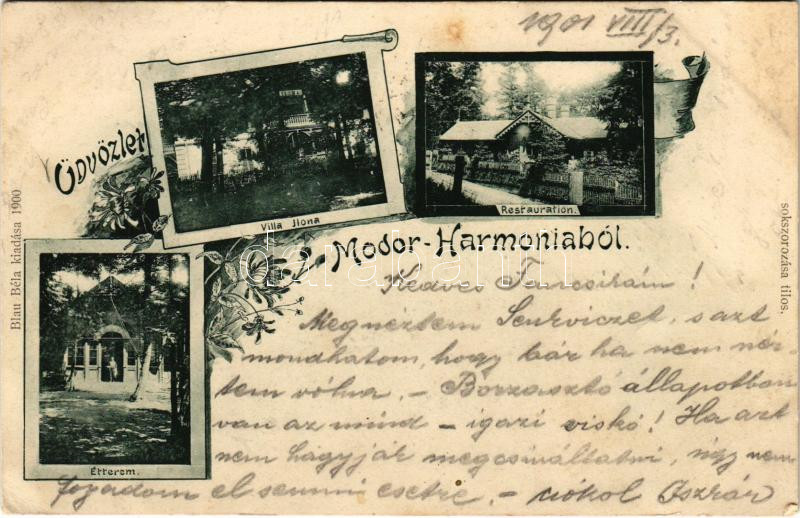 1901 VIII/3.
Üdvözlet
Villa Ilona
Restauration.
Modor-Harmoniaból.
Étterem.
Blau Béla kiadása 1900
sokszorozása tilos.
darabanth
Kedves Francsirám!
Megnéztem Szurviczet, s azt
mondhatom, hogy bár ha nem néz-
tem vólna, - Borzasztó állapotban
van az mind - igazi viskó! Ha azt
nem hagyják megcsináltatni, úgy nem
fogadom el semmi esetre, - csókol